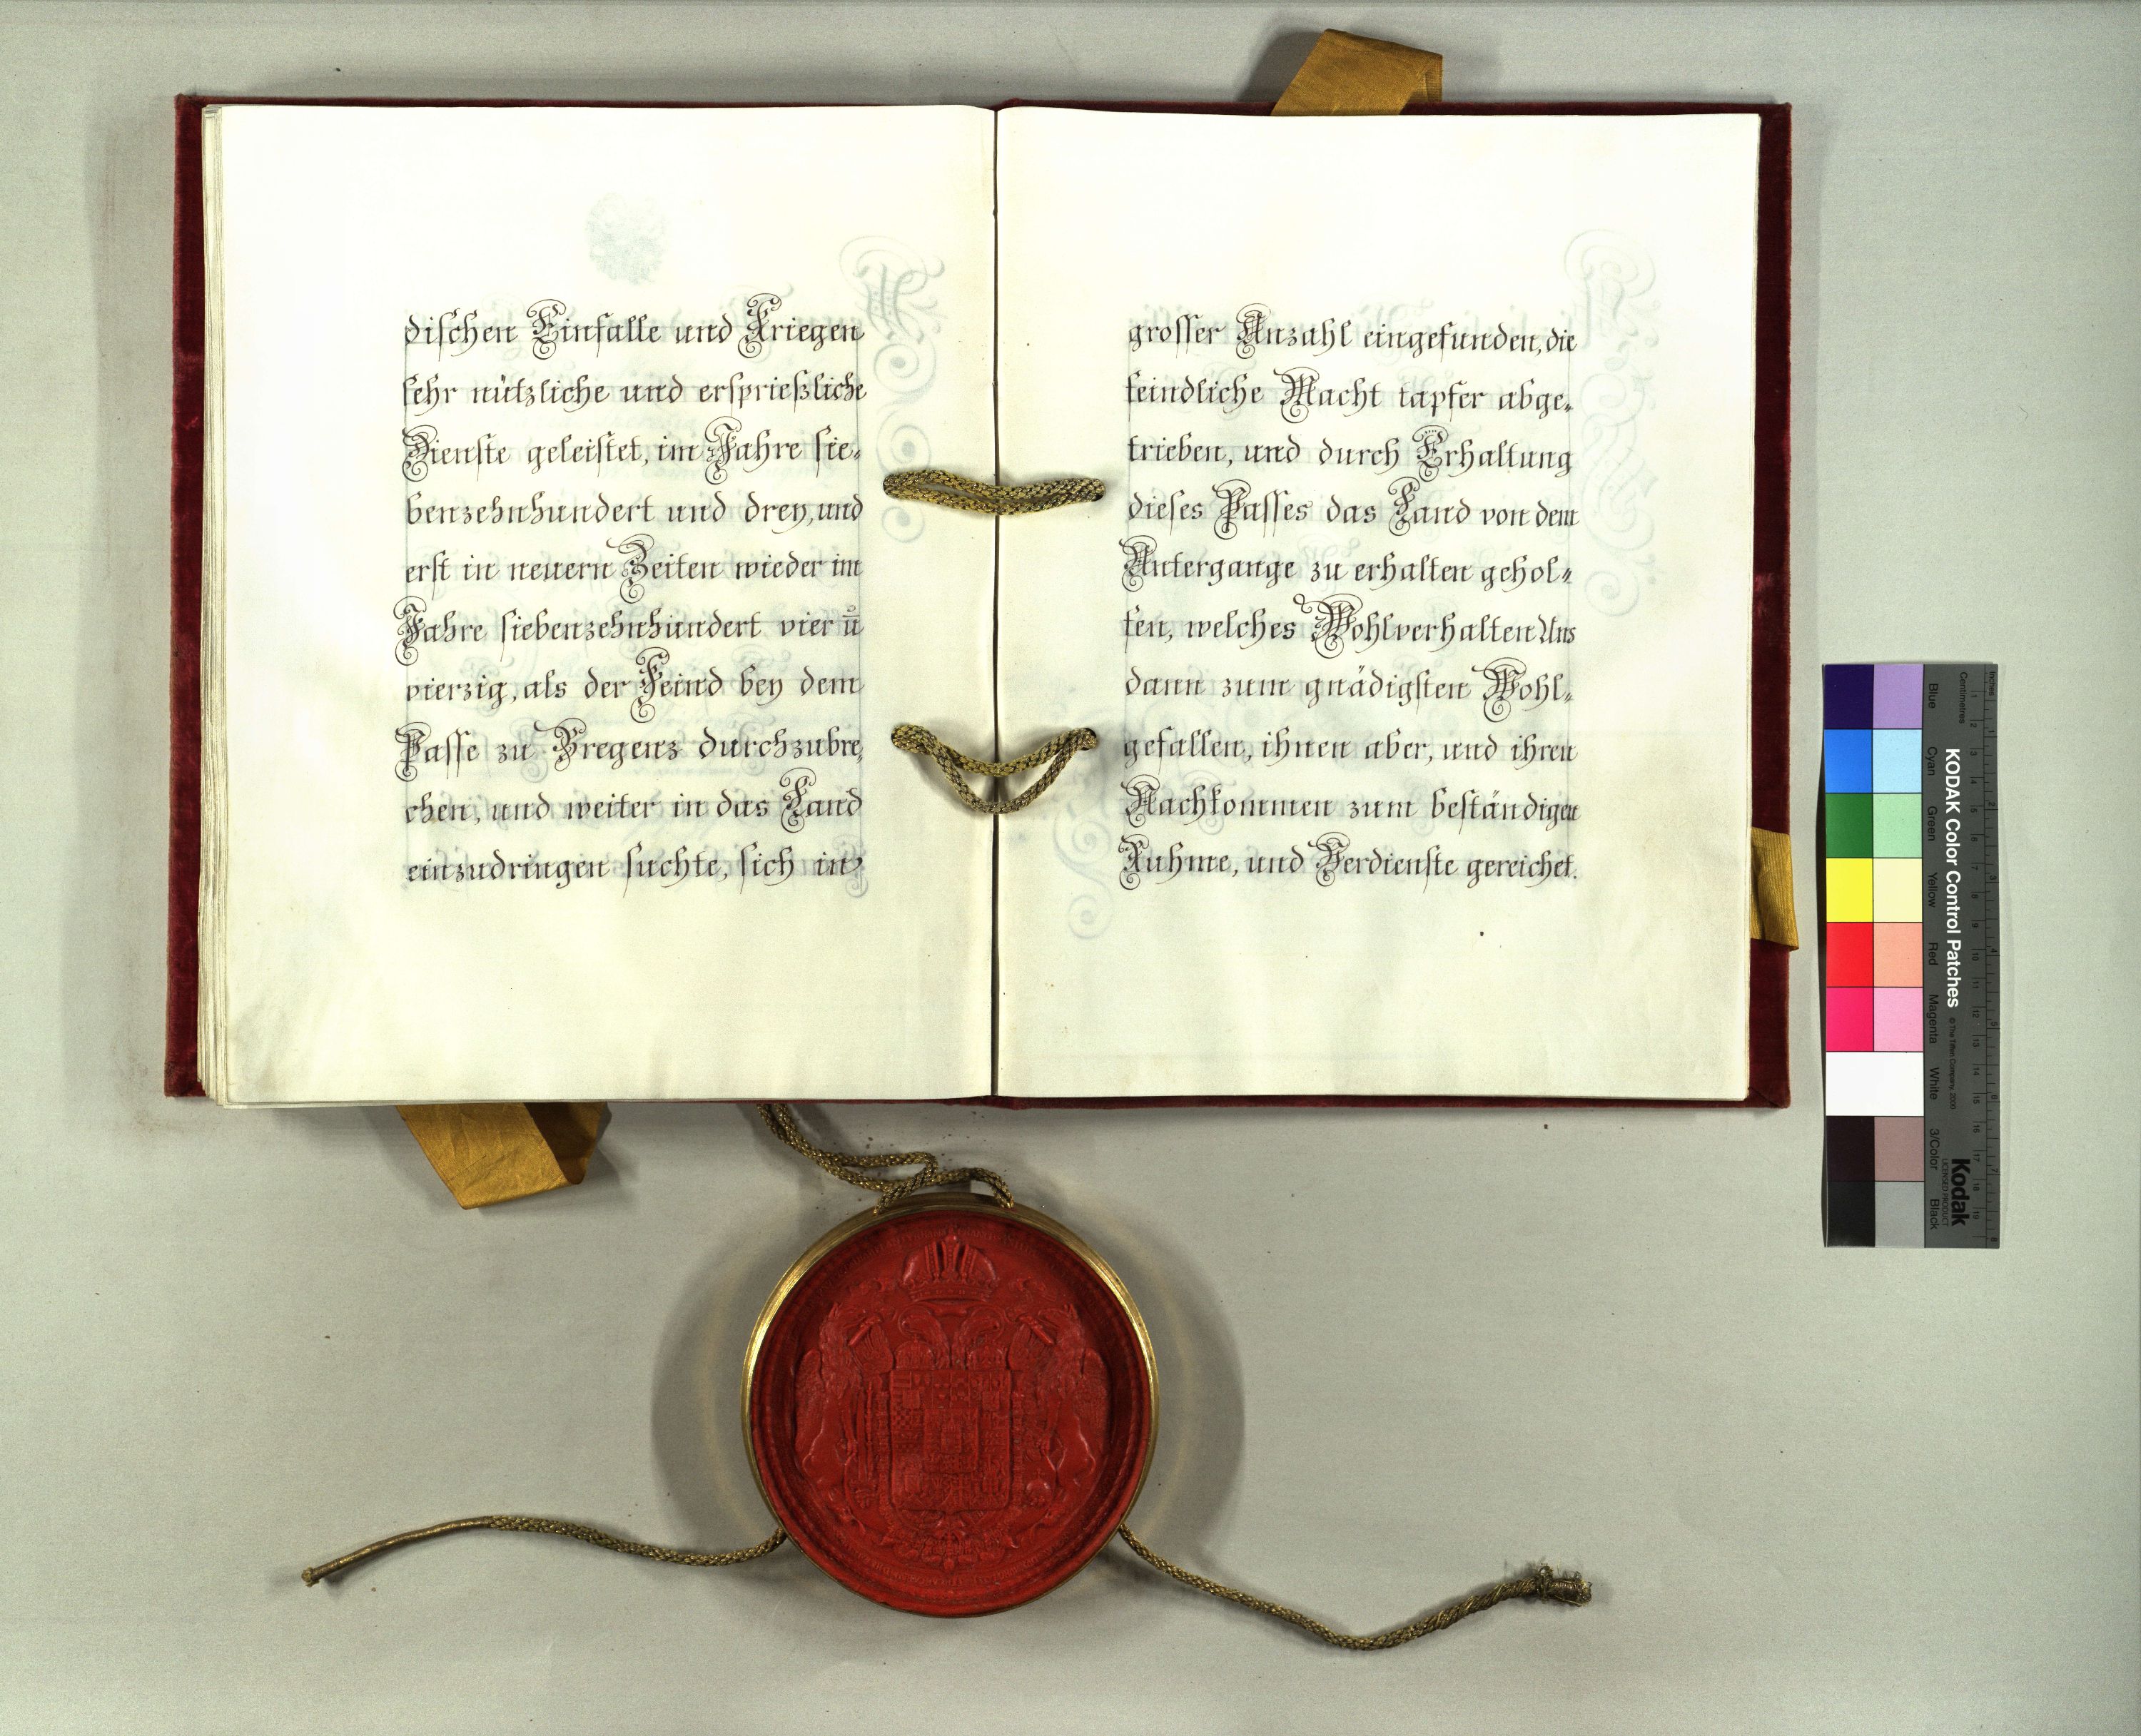 dischen Einfalle und Kriegen
sehr nützliche und ersprießliche
Dienste geleistet, im Jahre sie⸗
benzehnhundert und drey, und
erst in neuern Zeiten wieder im
Jahre siebenzehnhundert vier ū
vierzig, als der Feind bey dem
Passe zu Bregenz durchzubre⸗
chen, und weiter in das Land
einzudringen suchte, sich in
grosser Anzahl eingefunden, die
feindliche Macht tapfer abge⸗
trieben, und durch Erhaltung
dieses Passes das Land von dem
Untergange zu erhalten gehol⸗
fen, welches Wohlverhalten Uns
dann zum gnädigsten Wohl⸗
gefallen, ihnen aber, und ihren
Nachkommen zum beständigen
Ruhme, und Verdienste gereichet.
KODAK Color Control Patches
© The Tiffen Company, 2000
Kodak
LICENSED PRODUCT
Inches
Centimetres
1 2 3 4 5 6 7 8 9 10 11 12 13 14 15 16 17 18 19
1 2 3 4 5 6 7 8
Blue Cyan Green Yellow Red Magenta White 3/Color Black